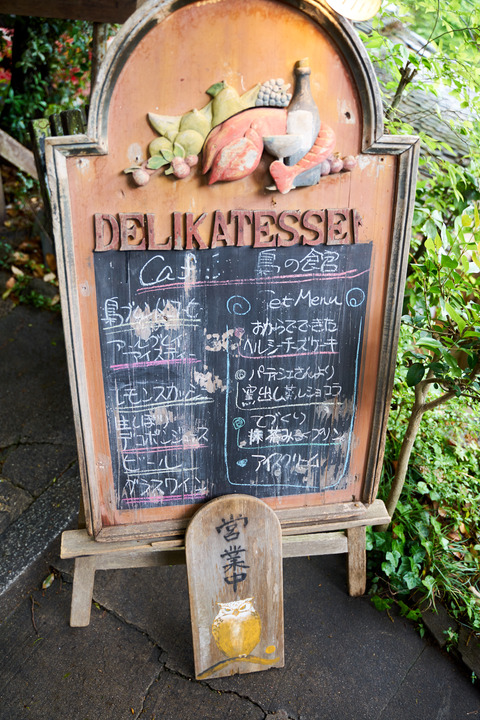 DELIKATESSE
Caf 島の食官
島ブレンドコーヒー
アールグレイ
アイスティー
レモンスカッシュ
生しぼり
デコポンジュース
ビール
グラスワイン
et Menu
おからでできた
ヘルシーチーズケーキ
パティシエさんより
窯出し ショコラ
てづくり
抹茶みるープリン
アイスクリーム
営業中